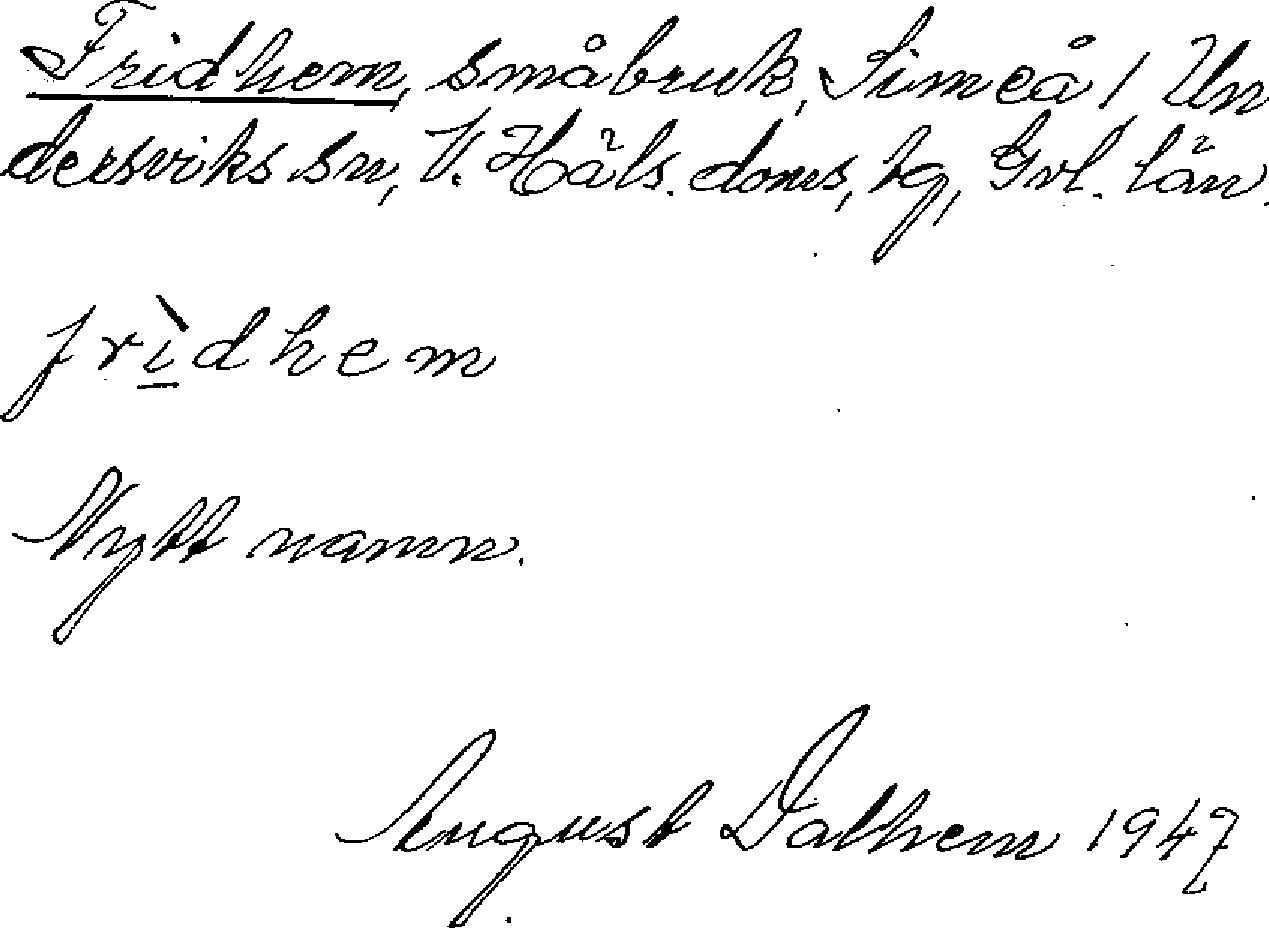 Fridhem, småbruk, Simeå 1 Un
dersviks sn, V. Häls. doms, tg, Gvl. län.
frìdhem
Nytt namn.
August Dalhem 1947